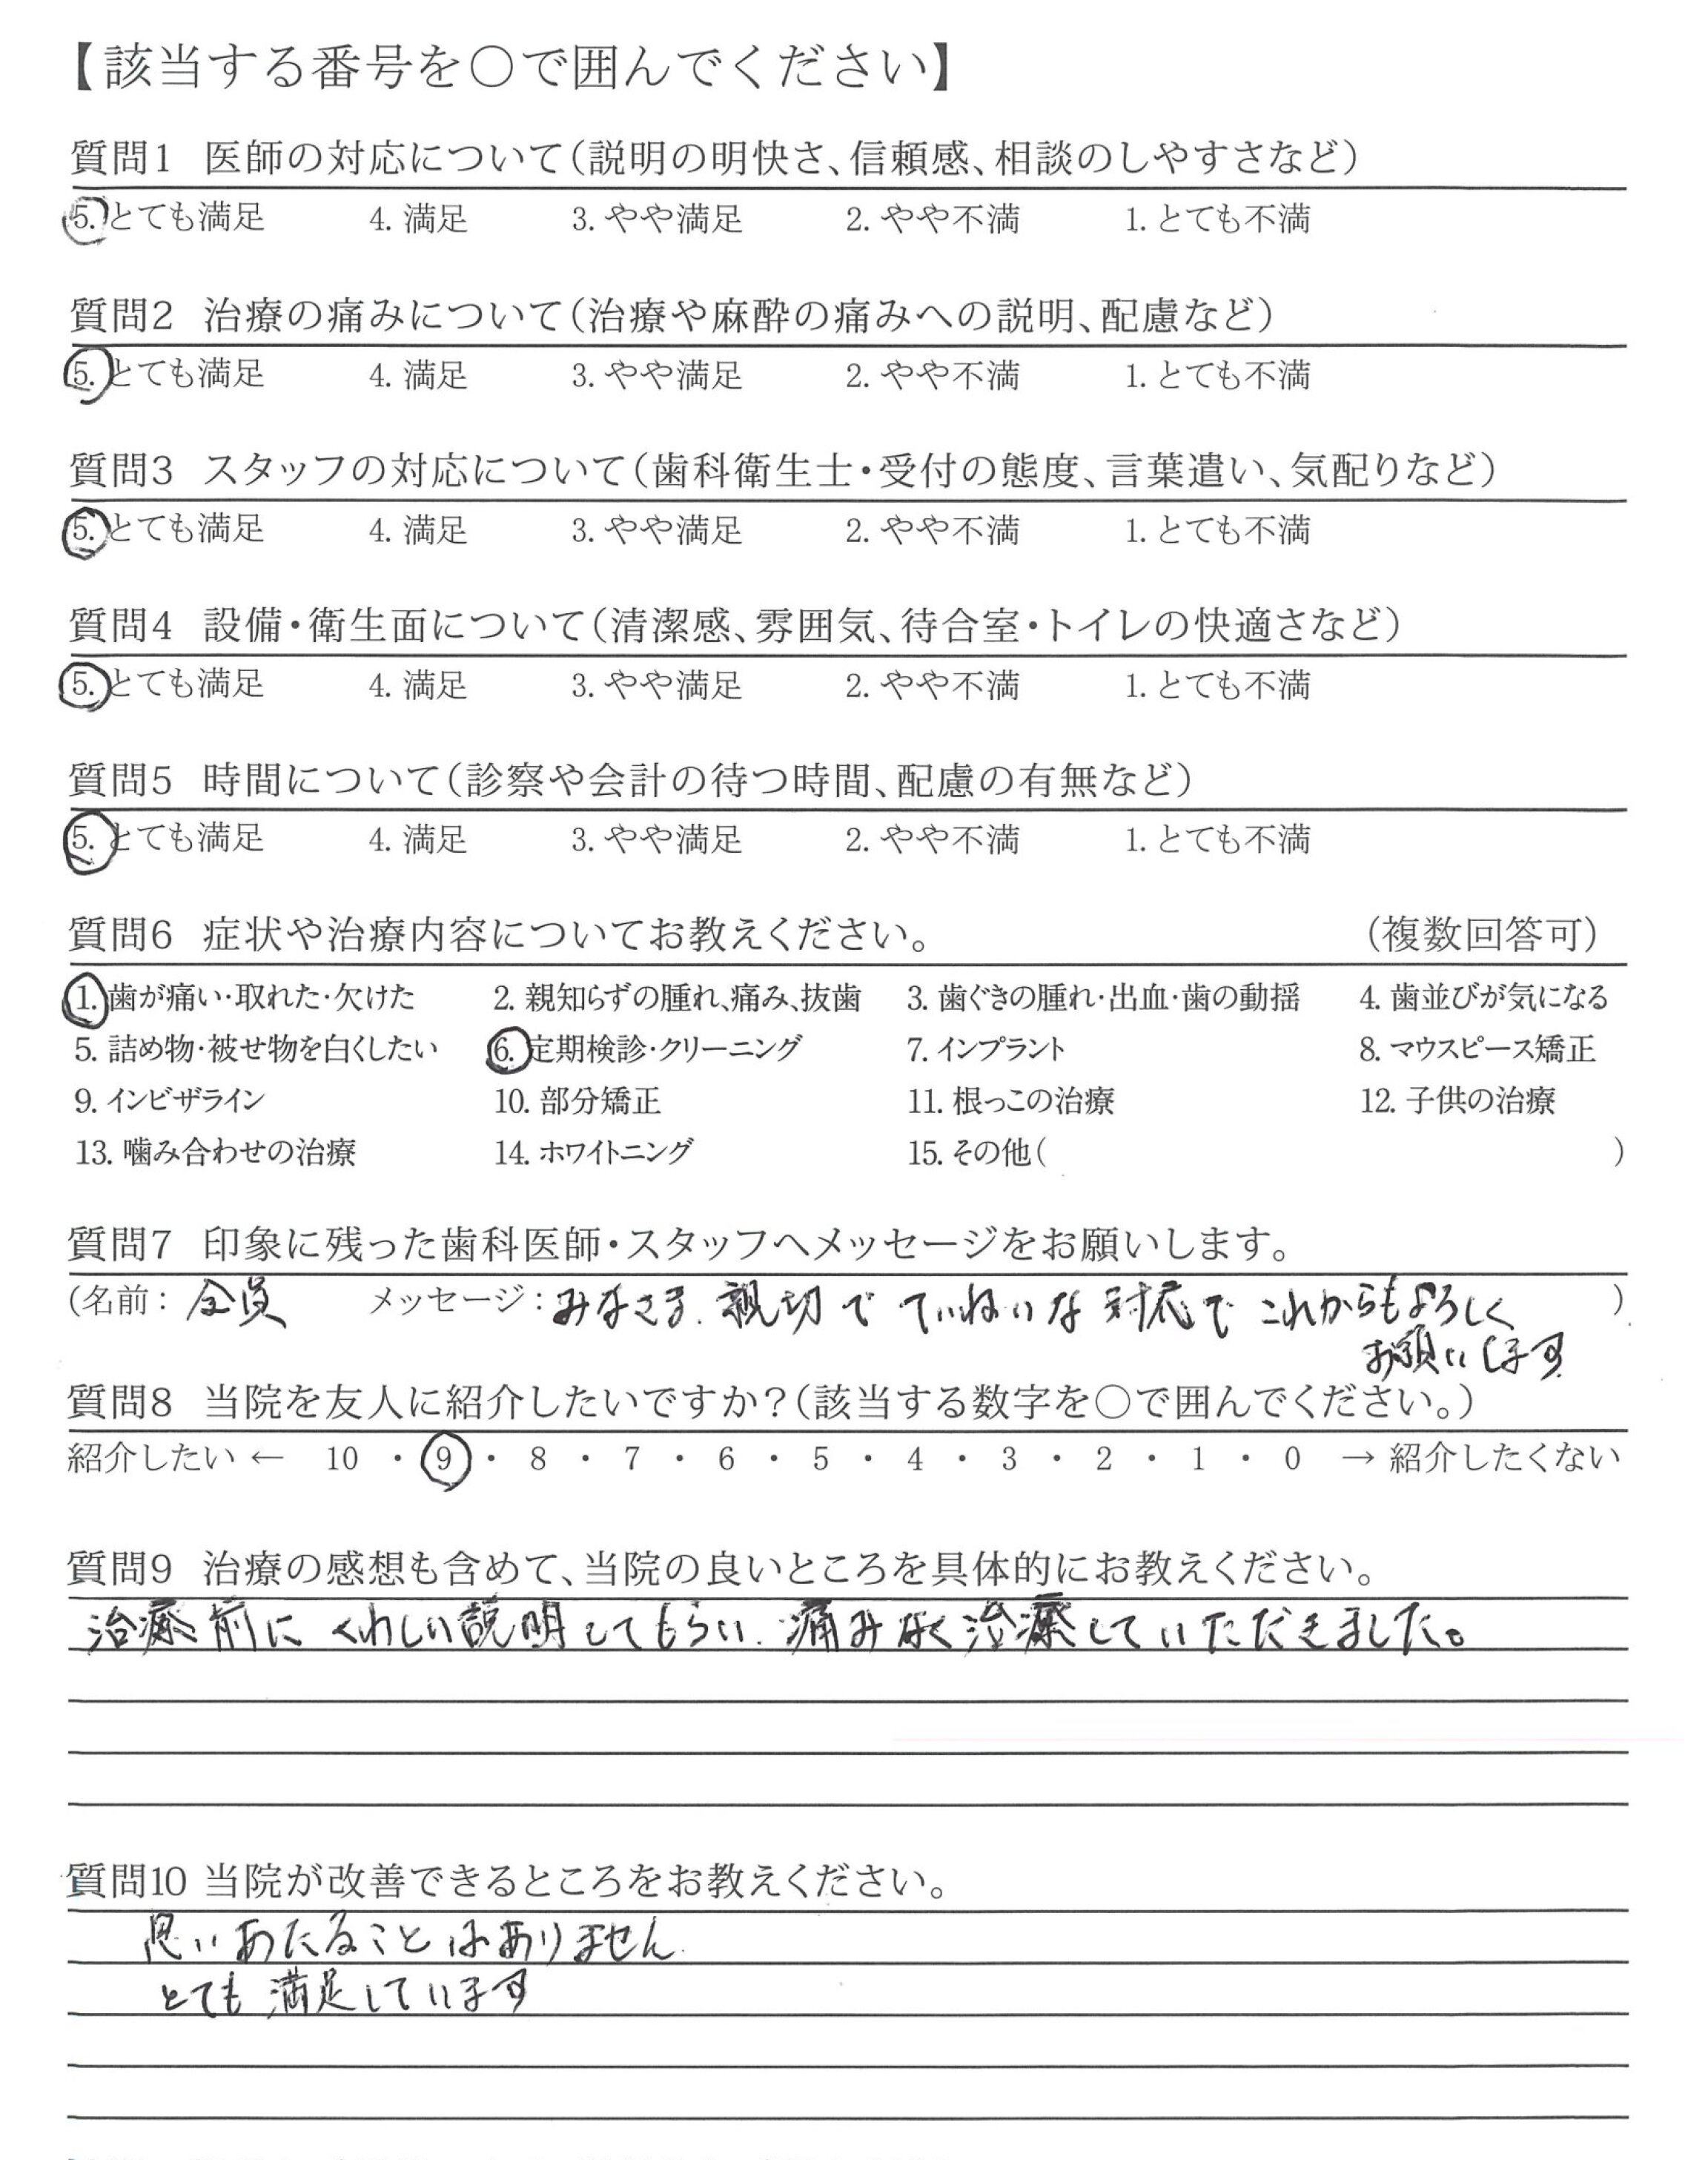 【該当する番号を〇で囲んでください】
質問1 医師の対応について(説明の明快さ、信頼感、相談のしやすさなど)
5. とても満足 4. 満足 3. やや満足 2. やや不満 1. とても不満
質問2 治療の痛みについて(治療や麻酔の痛みへの説明、配慮など)
5. とても満足 4. 満足 3. やや満足 2. やや不満 1. とても不満
質問3 スタッフの対応について(歯科衛生士・受付の態度、言葉遣い、気配りなど)
5. とても満足 4. 満足 3. やや満足 2. やや不満 1. とても不満
質問4 設備・衛生面について(清潔感、雰囲気、待合室・トイレの快適さなど)
5. とても満足 4. 満足 3. やや満足 2. やや不満 1. とても不満
質問5 時間について(診察や会計の待つ時間、配慮の有無など)
5. とても満足 4. 満足 3. やや満足 2. やや不満 1. とても不満
質問6 症状や治療内容についてお教えください。 (複数回答可)
1. 歯が痛い・取れた・欠けた 2. 親知らずの腫れ、痛み、抜歯 3. 歯ぐきの腫れ・出血・歯の動揺 4. 歯並びが気になる
5. 詰め物・被せ物を白くしたい 6. 定期検診・クリーニング 7. インプラント 8. マウスピース矯正
9. インビザライン 10. 部分矯正 11. 根っこの治療 12. 子供の治療
13. 噛み合わせの治療 14. ホワイトニング 15. その他( )
質問7 印象に残った歯科医師・スタッフへメッセージをお願いします。
(名前: 全員 メッセージ: みなさま、親切で ていねいな 対応で これからもよろしく )
お願いします
質問8 当院を友人に紹介したいですか?(該当する数字を〇で囲んでください。)
紹介したい ← 10 ・ 9 ・ 8 ・ 7 ・ 6 ・ 5 ・ 4 ・ 3 ・ 2 ・ 1 ・ 0 → 紹介したくない
質問9 治療の感想も含めて、当院の良いところを具体的にお教えください。
治療前に くわしい説明してもらい、痛みなく治療していただきました。
質問10 当院が改善できるところをお教えください。
思いあたることはありません
とても満足しています